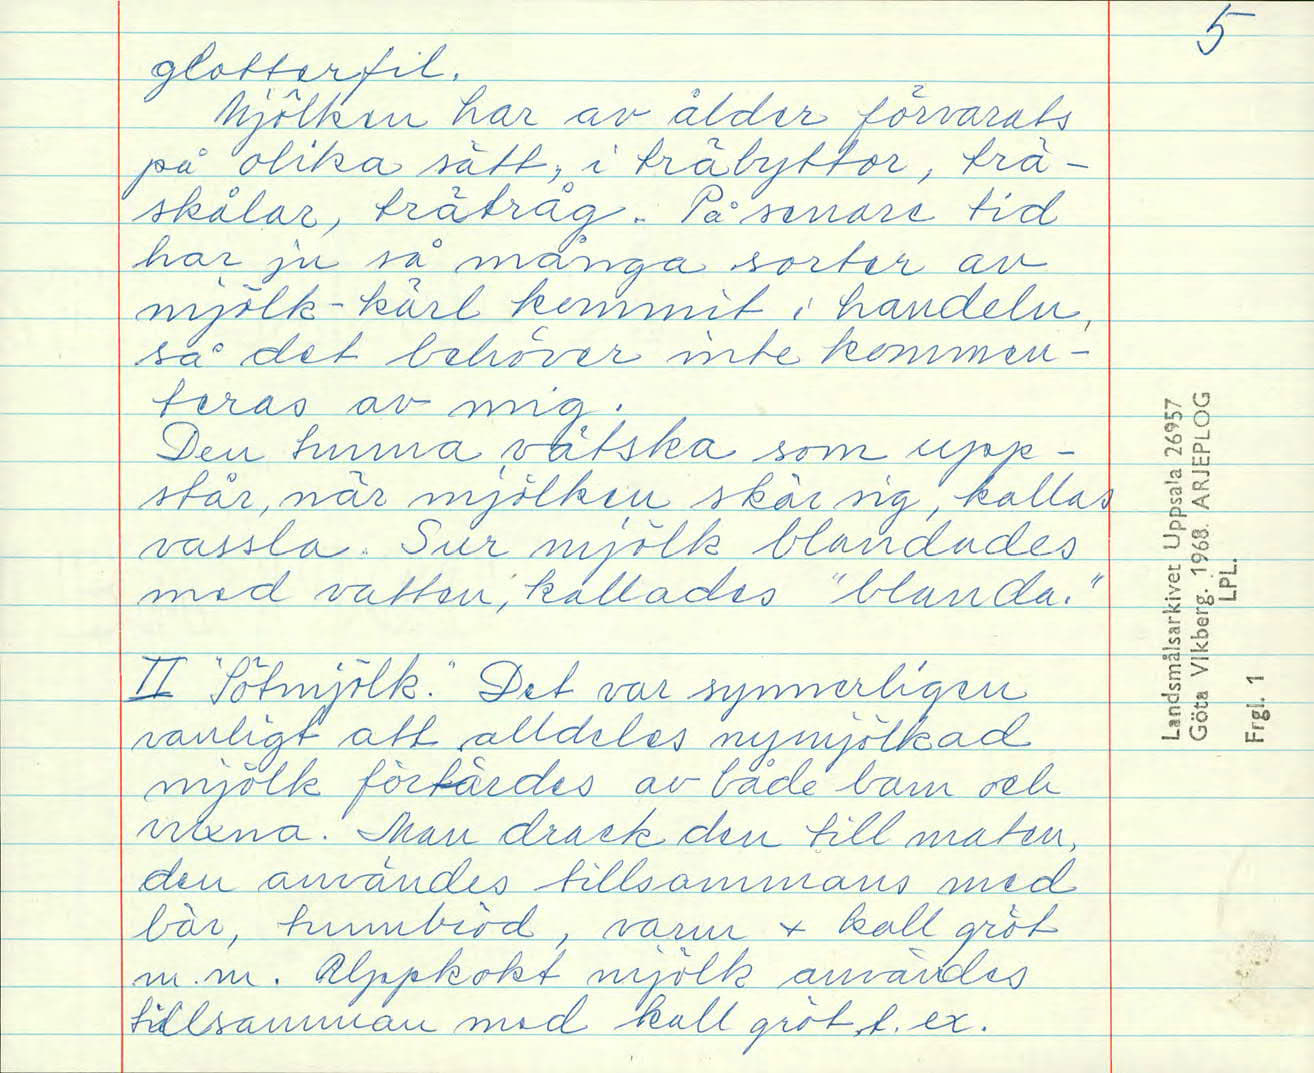 5
glotterfil.
Mjölken har av ålder förvarats
på olika sätt, i träbyttor, trä-
skålar, trätråg. På senare tid
har ju så många sorter av
mjölk-kärl kommit i handeln,
så det behöver inte kommen-
teras av mig.
Den tunna vätska som upp-
står, när mjölken skär sig, kallas
vassla. Sur mjölk blandades
med vatten, kallades "blanda."
II "Sötmjölk." Det var synnerligen
vanligt att alldeles nymjölkad
mjölk förtärdes av både barn och
vuxna. Man drack den till maten,
den användes tillsammans med
bär, tunnbröd, varm + kall gröt
m.m. Uppkokt mjölk användes
tillsamman med kall gröt, t. ex.
Landsmålsarkivet Uppsala 26957
Göta Vikberg. 1968. ARJEPLOG
LPL.
Frgl. 1